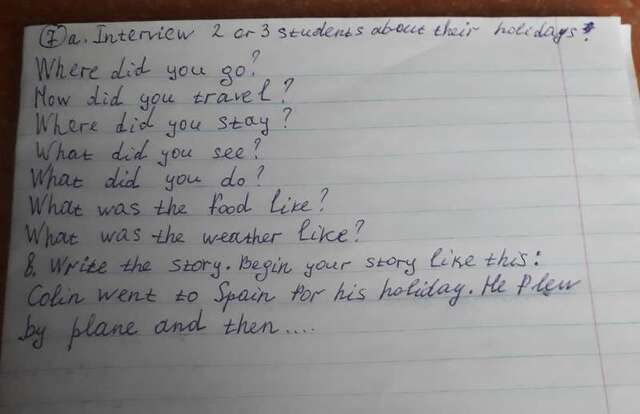 7 a. Interview 2 or 3 students about their holidays:
Where did you go?
How did you travel?
Where did you stay?
What did you see?
What did you do?
What was the food like?
What was the weather like?
8. Write the story. Begin your story like this:
Colin went to Spain for his holiday. He flew
by plane and then....